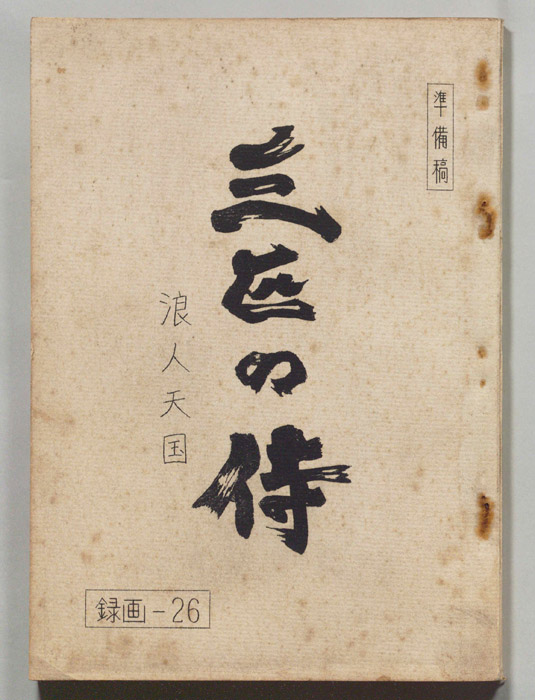 準備稿
三匹の侍
浪人天国
録画-26